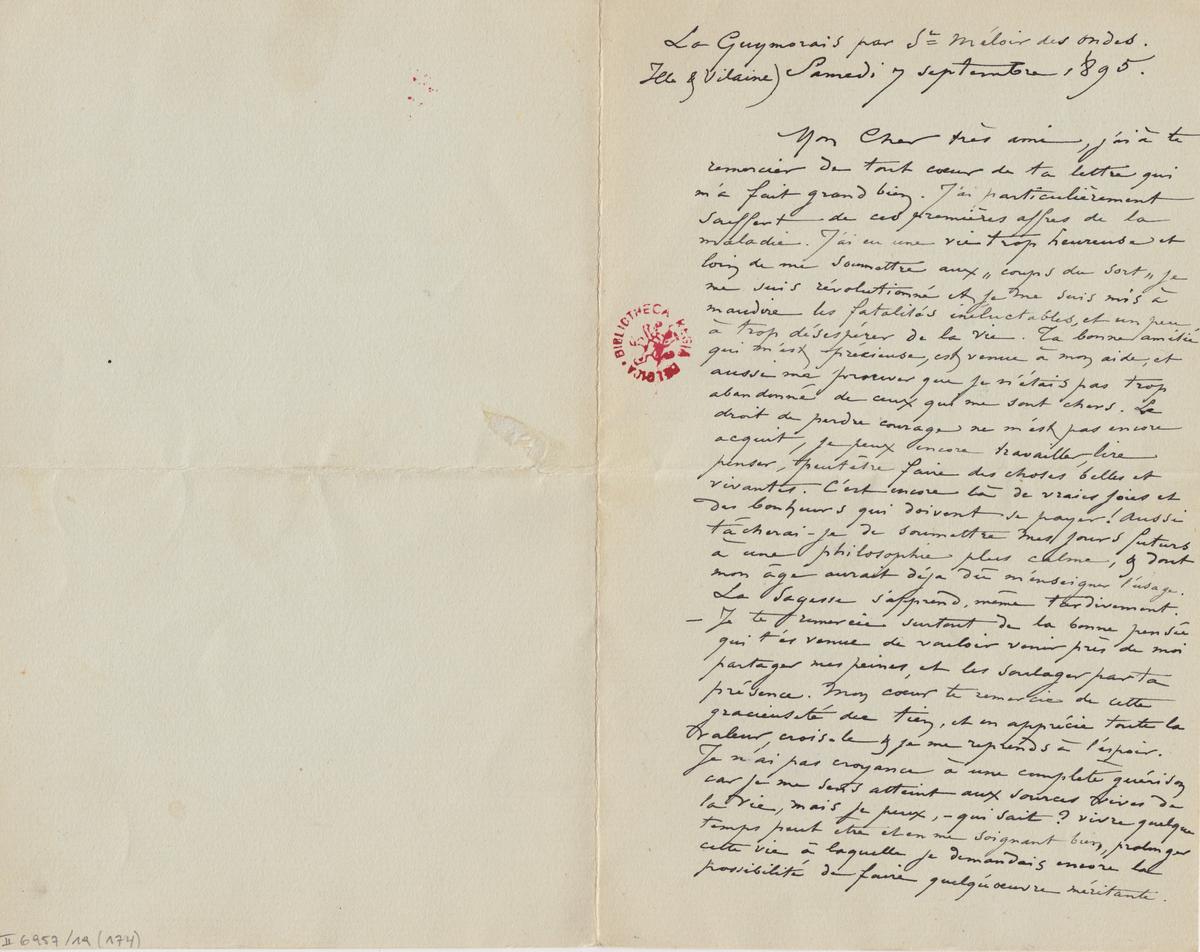 La Guymorais par St= Méloir des ondes.
Ille & Vilaine) Samedi 7 septembre 1895.
Mon Cher très ami, j'ai à te
remercier de tout cœur de ta lettre qui
m'a fait grand bien. J'ai particulièrement
souffert de ces premières affres de la
maladie. J'ai eu une vie trop heureuse et
loin de me soumettre aux „ coups du sort „ je
me suis révolutionné et je me suis mis à
maudire les fatalités inéluctables, et un peu
à trop désespérer de la vie. Ta bonne amitié
qui m'est précieuse, est venue à mon aide, et
aussi me prouver que je n'étais pas trop
abandonné de ceux qui me sont chers. Le
droit de perdre courage ne m'est pas encore
acquit, je peux encore travailler lire
penser, & peutêtre faire des choses belles et
vivantes. C'est encore là de vraies joies et
des bonheurs qui doivent se payer! Aussi
tâcherai-je de soumettre mes jours futurs
à une philosophie plus calme, & dont
mon âge aurait déja dû m'enseigner l'usage.
La Sagesse s'apprend, même tardivement.
— Je te remercie surtout de la bonne pensée
qui t'es venue de vouloir venir près de moi
partager mes peines, et les soulager par ta
présence. Mon cœur te remercie de cette
gracieuseté du tien, et en apprécie toute la
valeur crois-le & je me reprends à l'espoir.
Je n'ai pas croyance à une complète guérison
car je me sens atteint aux sources vives de
la vie, mais je peux, - qui sait? vivre quelque
temps peut être et en me soignant bien, prolonger
cette vie à laquelle je demandais encore la
possibilité de faire quelqu'œuvre méritante.
BIBLIOTHECA REGIA BELGICA
II 6957/19 (174)